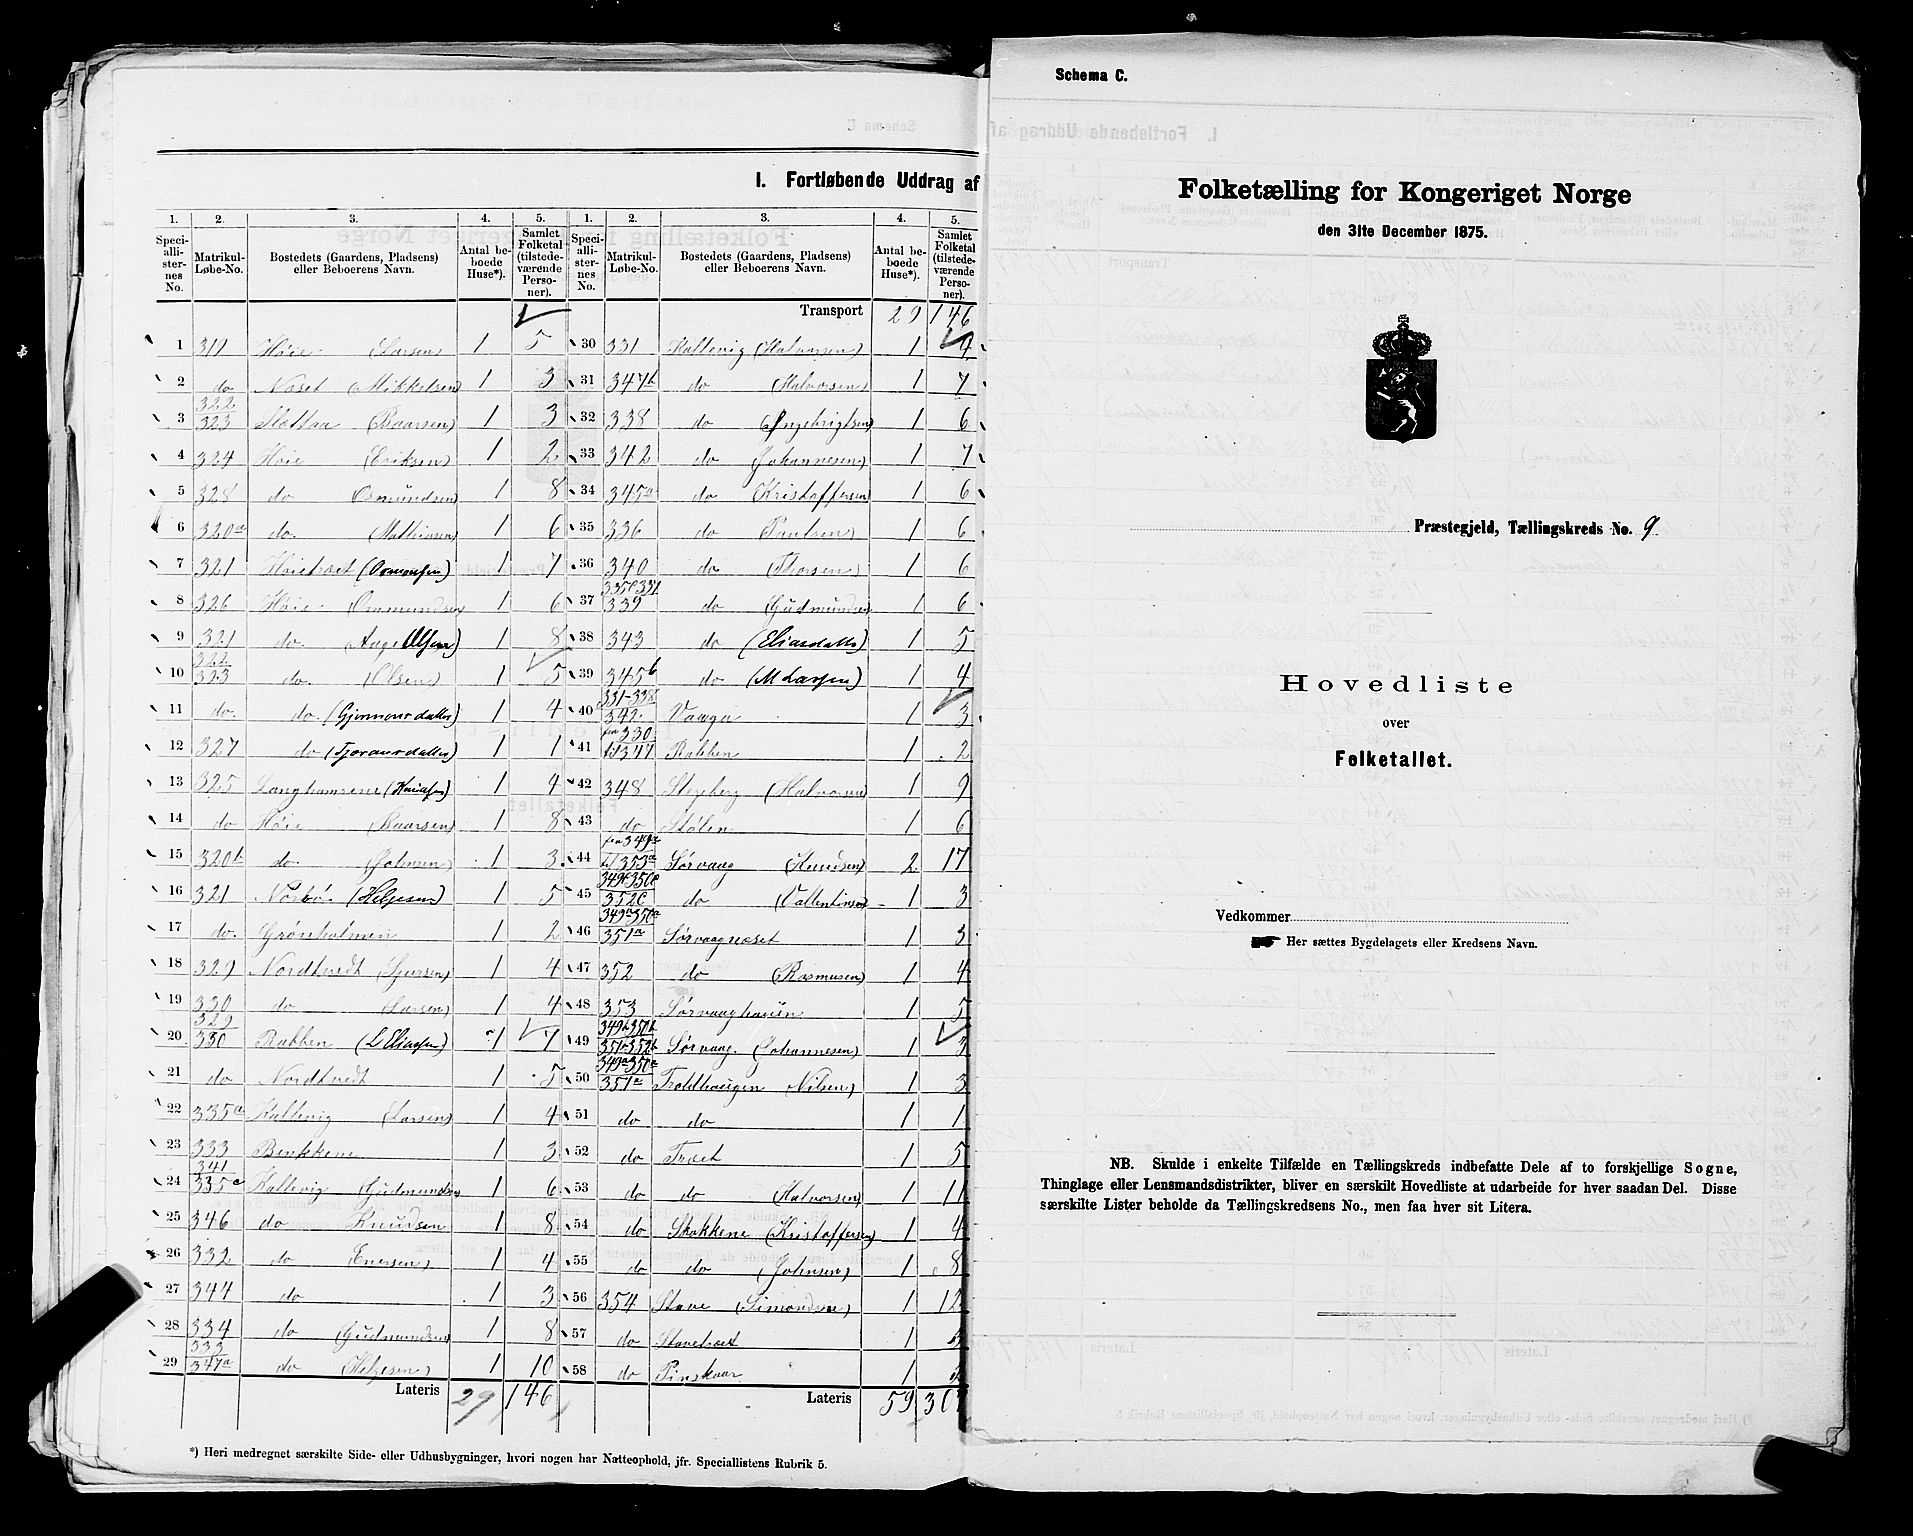 I. Fortløbende Uddrag af
1. 2. 3. 4. 5. 1. 2. 3. 4. 5.
Speciallisternes No. Matrikul-Løbe-No. Bostedets (Gaardens, Pladsens) eller Beboerens Navn. Antal beboede Huse*). Samlet Folketal (tilstedeværende Personer). Speciallisternes No. Matrikul-Løbe-No. Bostedets (Gaardens, Pladsens) eller Beboerens Navn. Antal beboede Huse*). Samlet Folketal (tilstedeværende Personer).
Transport 29 146
1 319 Høie (Larsen) 1 5
2 do Næset (Mikkelsen) 1 3
3 322 323 (Baarsen) 1 3
4 324 Høie (Eriksen) 1 2
5 328 do Osmundsen 1 8
6 320a do. (Mathiasen) 1 6
7 321 1 7
8 326 Høie Ommundsen 1 6
9 321 do. (Aage Olsen) 1 8
10 322 323 do. (Olsen) 1 5
11 do. do. 1 4
12 327 do 1 1
13 325 1 4
14 do Høie (Baarsen) 1 8
15 320b do. (Johnsen) 1 3
16 321 Norbø (Helgesen) 1 5
17 do. Grønholmen 1 2
18 329 Nordtvedt (Sjursen) 1 4
19 330 do (Larsen) 1 4
20 329 330 Rabben (L Eliassen) 1 7
21 do Nordtvedt 1 5
22 335a Kallevig (Larsen) 1 4
23 333 Benkkene 1 3
24 341 335c Kallevig (Gudmundsen 1 6
25 346 do Knudsen 1 8
26 332 do Enersen) 1 4
27 344 do 1 3
28 334 do (Gudmundsen 1 8
29 333 347a do (Helgesen) 1 10
Lateris 29 146
30 331 Kallevig (Halvorsen) 1 4
31 347b do (Halvorsen) 1 7
32 338 do (Ingebrigtsen) 1 6
33 342 do (Johannesen) 1 7
34 345a do (Kristoffersen) 1 6
35 336 do (Paulsen) 1 6
36 340 do (Thorsen) 1 6
37 339 do (Gudmundsen 1 6
38 343 do (Eliasdatter) 1 5
39 345b do (M Larsen) 1 4
40 331-338 342 Vaaga 1 3
41 fra 330 til 347 Rabben 1 2
42 348 Stegberg (Halvorsen) 1 9
43 do Stølen 1 6
44 fra 349a til 353a Sørvaag (Knudsen) 2 17
45 349c 350c 352c do (Vallentinsen 1 3
46 349a 350a 351a Sørvaagnæset 1 3
47 352 do (Rasmusen) 1 4
48 353 Sørvaaghauen 1 5
49 349b 350b 351-352b Sørvaag. (Johannesen) 1 3
50 349a 350a 351a Troldhaugen Nilsen) 1 3
51 do do 1 1
52 do Træet 1 5
53 do do (Halvorsen) 1 11
54 do Stokkene (Kristoffersen) 1 4
55 do do (Johnsen) 1 8
56 354 Stave (Simonsen) 1 12
57 do Stavetræet 1
58 do Pinskaar 1
Lateris 59 307
*) Heri medregnet særskilte Side- eller Udhusbygninger, hvori nogen har Natteophold, jfr. Speciallistens Rubrik 5.
Schema C.
Folketælling for Kongeriget Norge
den 31te December 1875.
Præstegjeld, Tællingskreds No. 9
Hovedliste
over
Folketallet.
Vedkommer
Her sættes Bygdelagets eller Kredsens Navn.
NB. Skulde i enkelte Tilfælde en Tællingskreds indbefatte Dele af to forskjellige Sogne,
Thinglage eller Lensmandsdistrikter, bliver en særskilt Hovedliste at udarbeide for hver saadan Del. Disse
særskilte Lister beholde da Tællingskredsens No., men faa hver sit Litera.